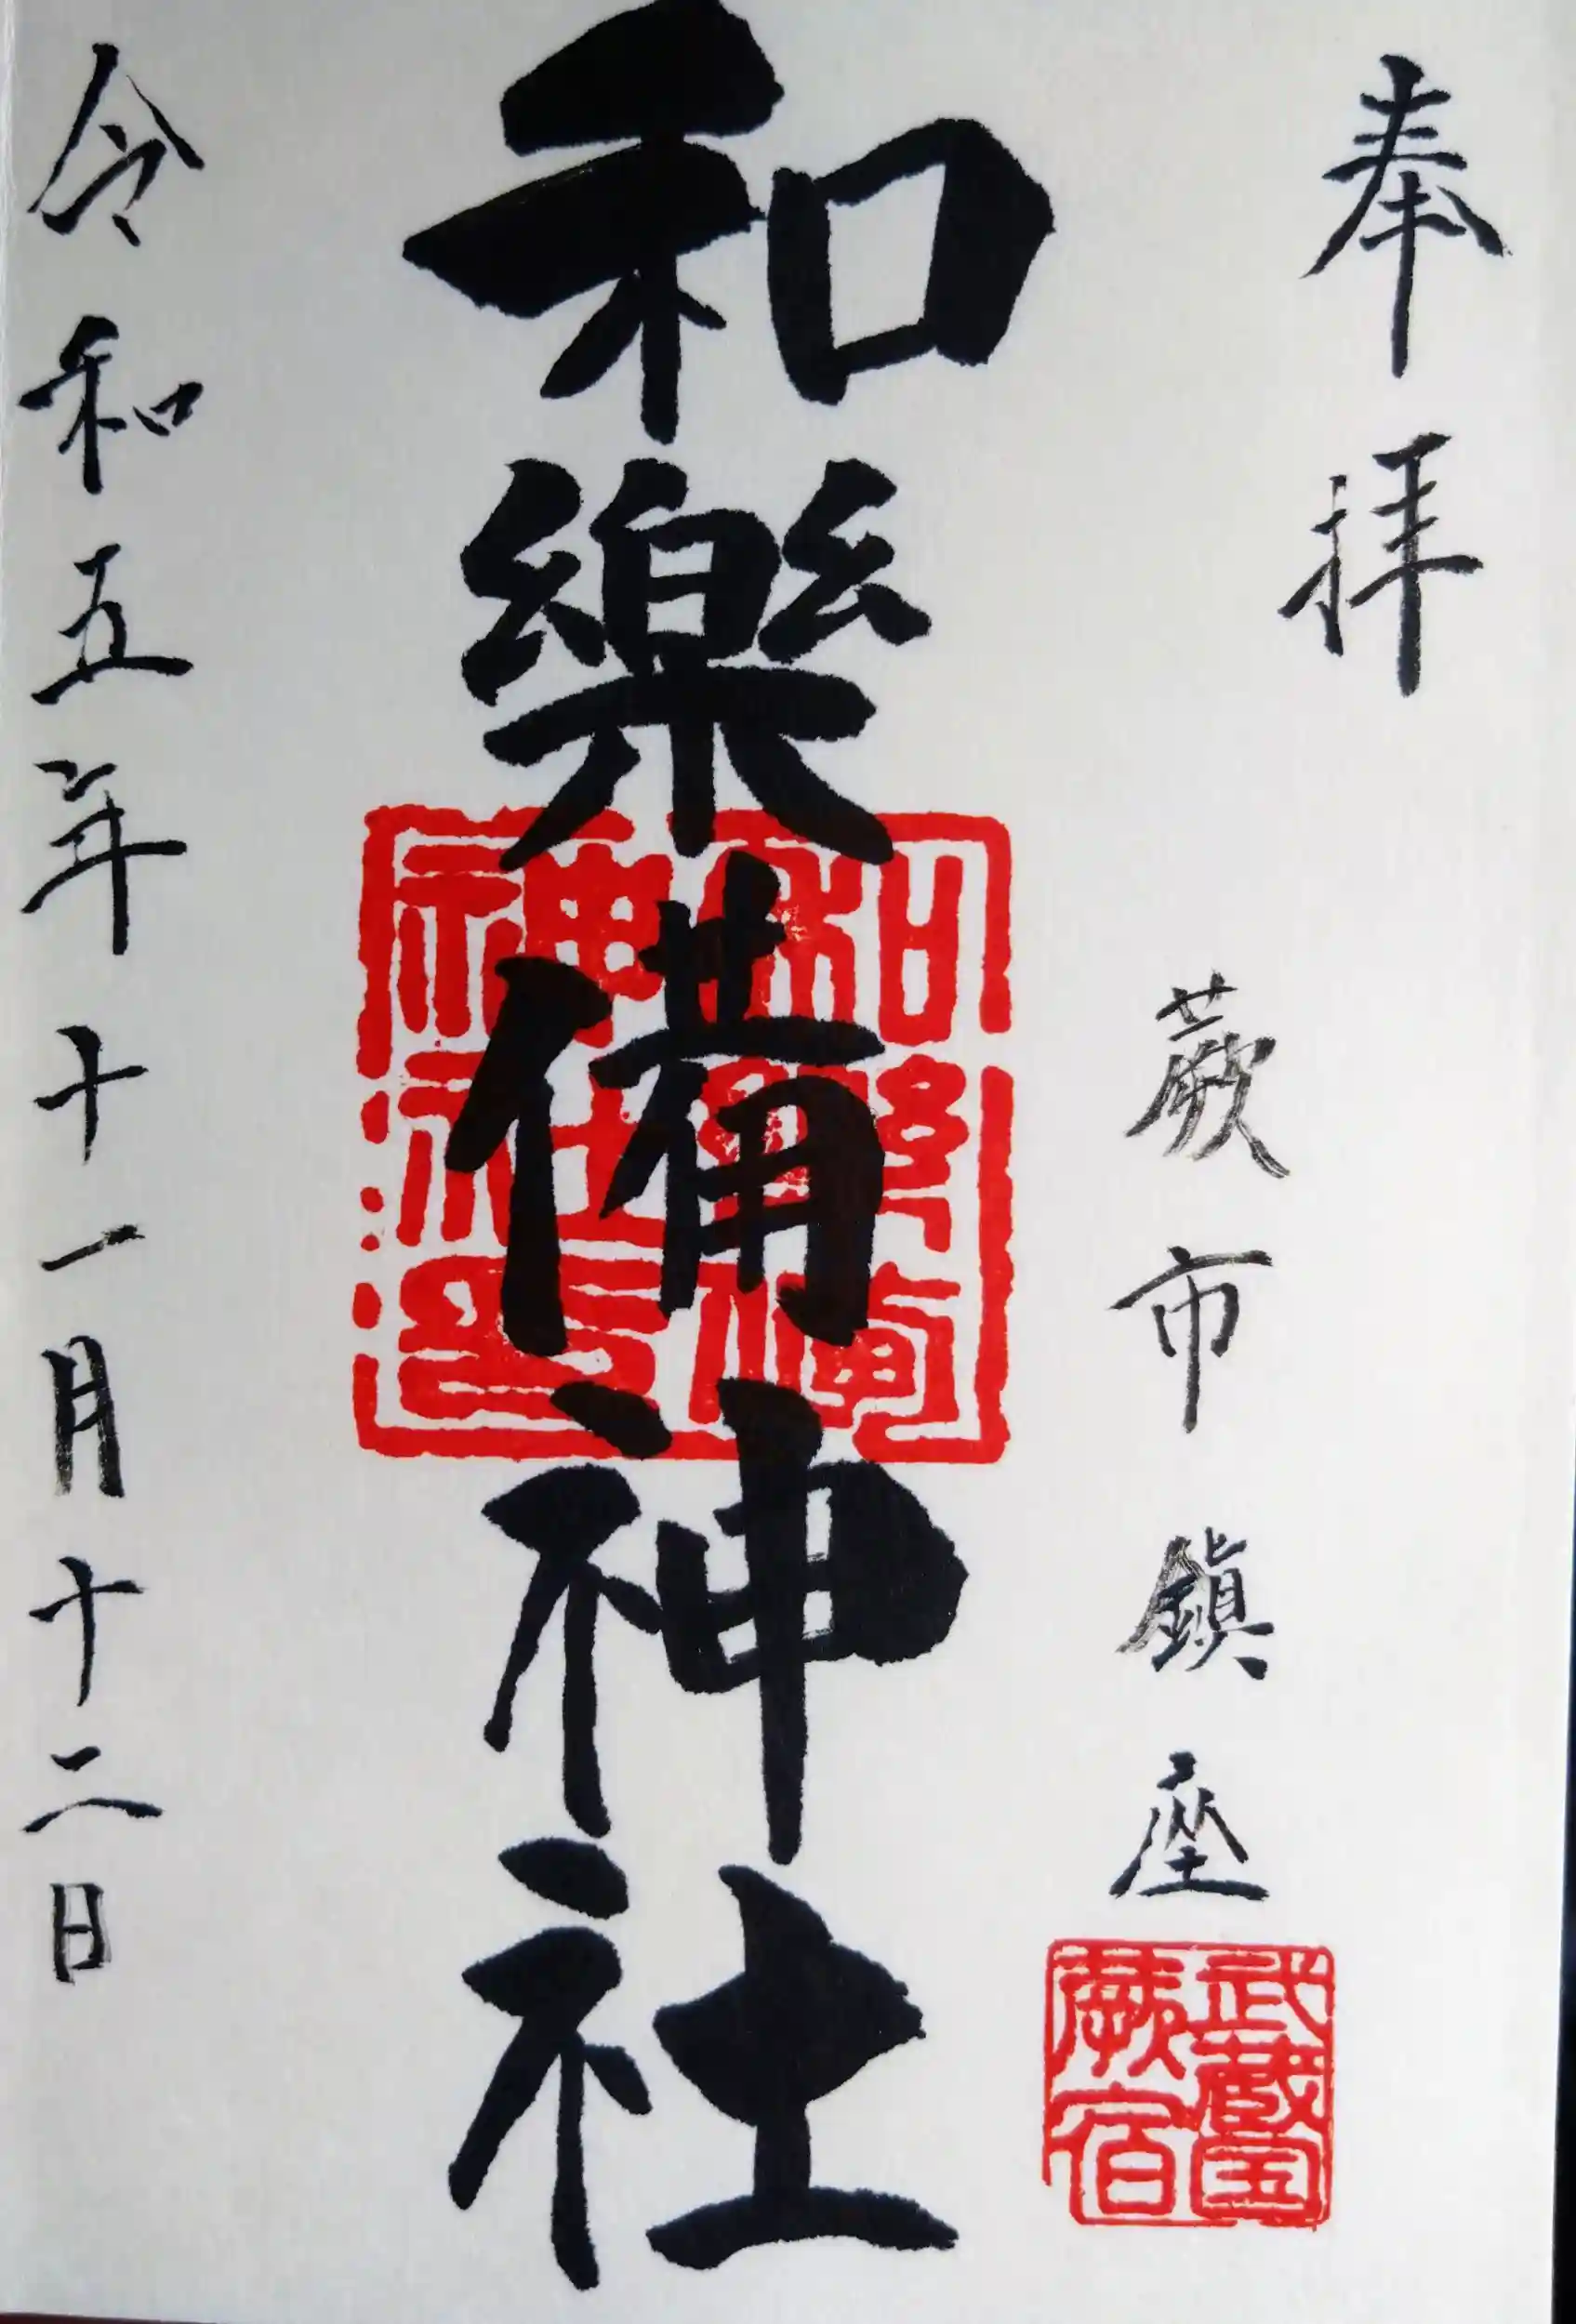 奉拝
蕨市鎮座
武蔵国
蕨宿
和樂備神社
和樂備
神社之印
令和五年十一月十二日